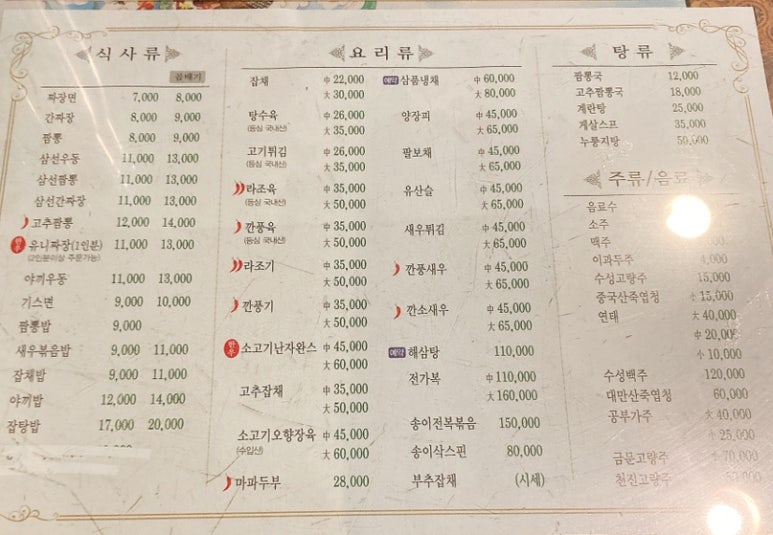 식사류
곱빼기
짜장면 7,000 8,000
간짜장 8,000 9,000
짬뽕 8,000 9,000
삼선우동 11,000 13,000
삼선짬뽕 11,000 13,000
삼선간짜장 11,000 13,000
고추짬뽕 12,000 14,000
한우 유니짜장(1인분) 11,000 13,000
(2인분이상 주문가능)
야끼우동 11,000 13,000
기스면 9,000 10,000
짬뽕밥 9,000
새우볶음밥 9,000 11,000
잡채밥 9,000 11,000
야끼밥 12,000 14,000
잡탕밥 17,000 20,000
요리류
잡채 中 22,000
大 30,000
탕수육 中 26,000
(등심 국내산) 大 35,000
고기튀김 中 26,000
(등심 국내산) 大 35,000
라조육 中 35,000
(등심 국내산) 大 50,000
깐풍육 中 35,000
(등심 국내산) 大 50,000
라조기 中 35,000
大 50,000
깐풍기 中 35,000
大 50,000
한우 소고기난자완스 中 45,000
大 60,000
고추잡채 中 35,000
大 50,000
소고기오향장육 中 45,000
(수입산) 大 60,000
마파두부 28,000
예약 삼품냉채 中 60,000
大 80,000
양장피 中 45,000
大 65,000
팔보채 中 45,000
大 65,000
유산슬 中 45,000
大 65,000
새우튀김 中 45,000
大 65,000
깐풍새우 中 45,000
大 65,000
깐소새우 中 45,000
大 65,000
예약 해삼탕 110,000
전가복 中 110,000
大 160,000
송이전복볶음 150,000
송이삭스핀 80,000
부추잡채 (시세)
탕류
짬뽕국 12,000
고추짬뽕국 18,000
계란탕 25,000
게살스프 35,000
누룽지탕 50,000
주류/음료
음료수
소주
맥주
이과두주 4,000
수성고량주 15,000
중국산죽엽청 小 15,000
연태 大 40,000
中 20,000
小 10,000
수성백주 120,000
대만산죽엽청 60,000
공부가주 大 40,000
小 25,000
금문고량주 小 70,000
천진고량주